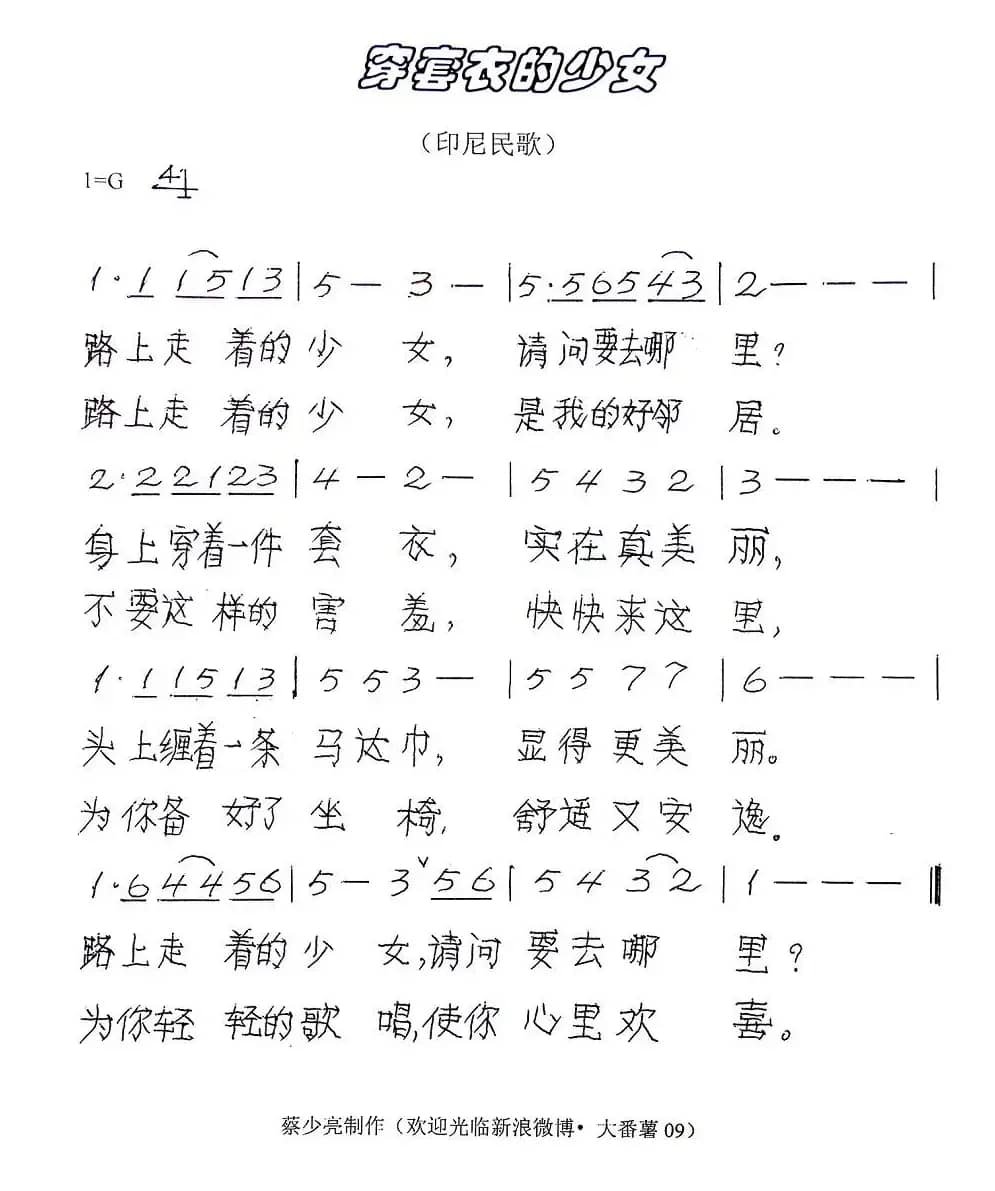 穿套衣的少女
（印尼民歌）
1=G 4/4
1· 1 1 5 1 3 | 5 — 3 — | 5· 5 6 5 4 3 | 2 — — — |
路上走 着的少 女， 请问要去哪 里？
路上走 着的少 女， 是我的好邻 居。
2· 2 2 1 2 3 | 4 — 2 — | 5 4 3 2 | 3 — — — |
身上穿着一件 套 衣， 实在真美 丽，
不要这 样的 害 羞， 快快来这 里，
1· 1 1 5 1 3 | 5 5 3 — | 5 5 7 7 | 6 — — — |
头上缠着一条 马达巾， 显得更美 丽。
为你备 好了 坐 椅， 舒适又安 逸。
1· 6 4 4 5 6 | 5 — 3 ∨ 5 6 | 5 4 3 2 | 1 — — — ‖
路上走 着的少 女，请问 要去哪 里？
为你轻 轻的歌 唱，使你 心里欢 喜。
蔡少亮制作（欢迎光临新浪微博· 大番薯 09）